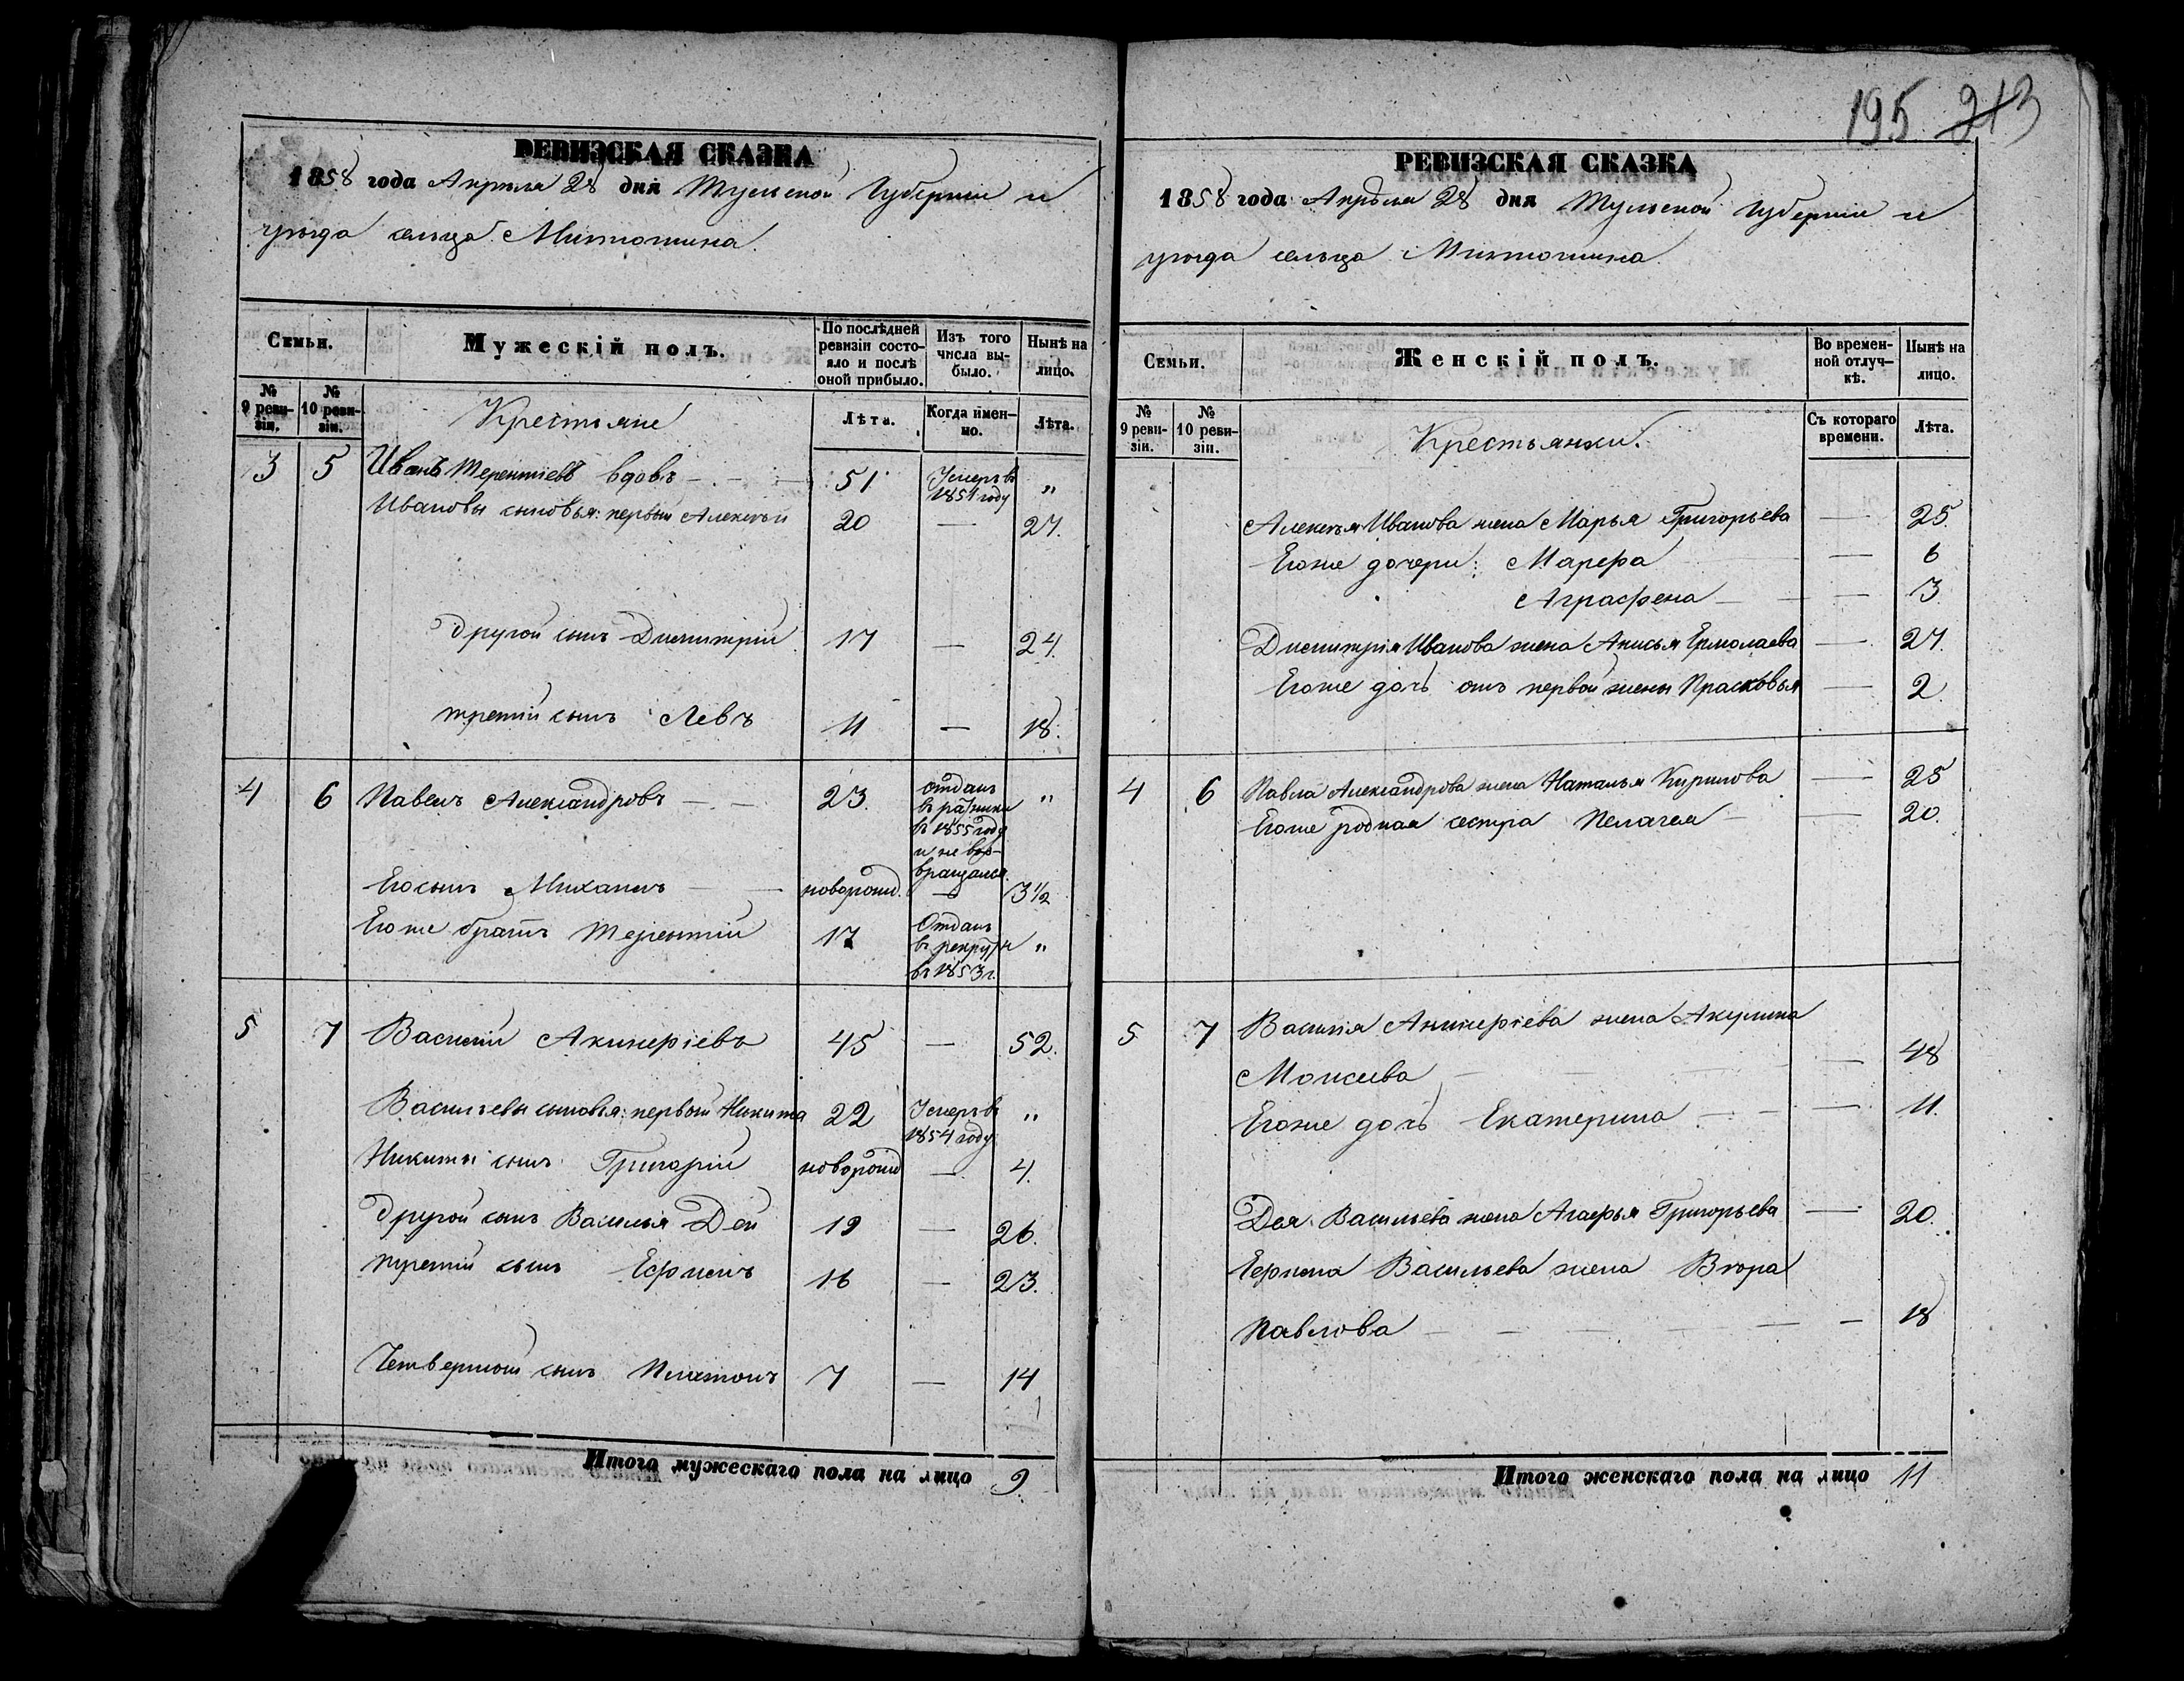 195 213
РЕВИЗСКАЯ СКАЗКА
1858 года Апрѣля 28 дня Тульской Губерніи и
уѣзда сельца Митюшина.
Семьи.
Мужескій полъ.
По послѣдней ревизіи состояло и послѣ оной прибыло.
Изъ того числа выбыло.
Нынѣ на лицо.
№ 9 ревизіи.
№ 10 ревизіи.
Крестьяне
Лѣта.
Когда именно.
Лѣта.
3 5 Иванъ Терентіевъ вдовъ - - - 51 Умеръ въ 1851 году "
Ивановы сыновья: первый Алексѣй 20 — 27.
Другой сынъ Дмитрій 17 — 24.
третій сынъ Левъ 11 — 18.
4 6 Павелъ Александровъ - - 23 отданъ въ ратники въ 1855 году и не возвращался. "
Его сынъ Михаилъ — новорожд. — 3 1/2
Его же братъ Терентій 17 Отданъ въ рекруты въ 1853 г. "
5 7 Василій Акинеріевъ 45 — 52.
Васильевы сыновья: первый Никита 22 Умеръ въ 1854 году "
Никиты сынъ Григорій новорожд — 4.
Другой сынъ Василья Дей 19 — 26.
третій сынъ Ефимъ 16 — 23.
Четвертый сынъ Платонъ 7 — 14
Итого мужескаго пола на лицо 9.
РЕВИЗСКАЯ СКАЗКА
1858 года Апрѣля 28 дня Тульской Губерніи и
уѣзда сельца Митюшина.
Семьи.
Женскій полъ.
Во временной отлучкѣ.
Нынѣ на лицо.
№ 9 ревизіи.
№ 10 ревизіи.
Крестьянки.
Съ котораго времени.
Лѣта.
Алексѣя Иванова жена Марья Григорьева — 25.
Его же дочери: Марфа — 6
Аграфена — — 3.
Дмитрія Иванова жена Анисья Ермолаева — 27.
Его же дочь отъ первой жены Прасковья — 2.
4 6 Павла Александрова жена Наталья Кирилова — 25
Его же родная сестра Пелагея — — 20.
5 7 Василія Акинеріева жена Акулина
Моисеева — — — 48
Его же дочь Екатерина — — — 11.
Дея Васильева жена Агафья Григорьева — 20.
Ефима Васильева жена Вѣра
Павлова — — — — — 18
Итого женскаго пола на лицо 11